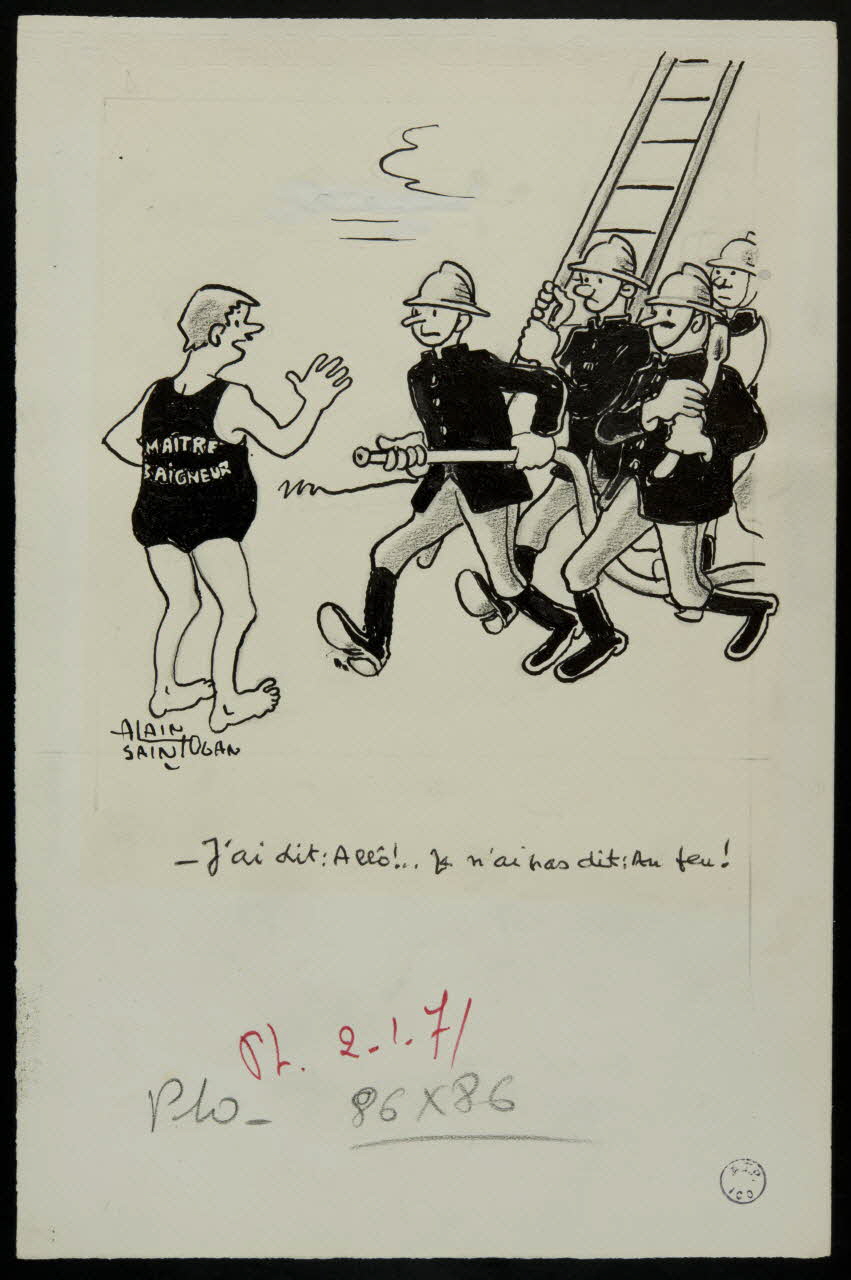 MAÎTRE
BAIGNEUR
ALAIN
SAINT-OGAN
— J'ai dit : Allô !... Je n'ai pas dit : Au feu !
Pl. 2.1.71
Plo_ 86 X 86
A.T.P.